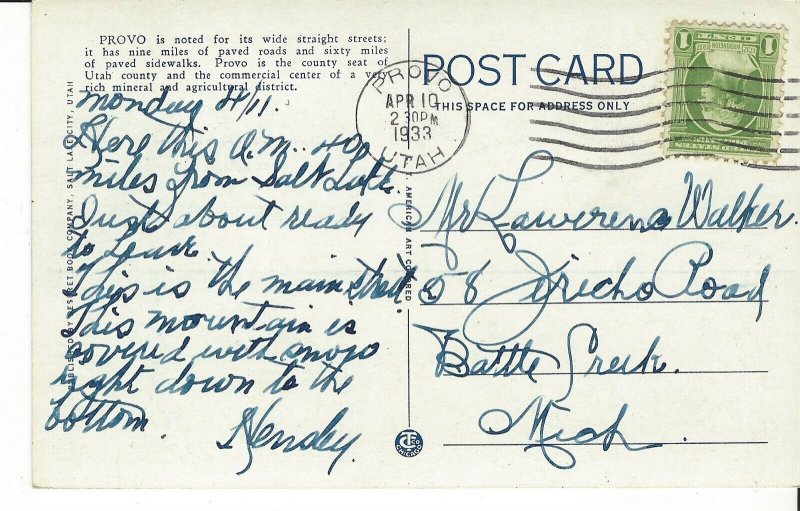 PROVO is noted for its wide straight streets;
it has nine miles of paved roads and sixty miles
of paved sidewalks. Provo is the county seat of
Utah county and the commercial center of a very
rich mineral and agricultural district.
Monday 4/11.
Here this A.M. 40
miles from Salt Lake.
Just about ready
to leave.
This is the main street.
This mountain is
covered with snow
right down to the
bottom.
Hensley.
PROVO
APR 10
2 30 PM
1933
UTAH
POST CARD
THIS SPACE FOR ADDRESS ONLY
1
Mr Lawerence Walker.
58 Jericho Road
Battle Creek.
Mich.
PUBLISHED BY DESERET BOOK COMPANY, SALT LAKE CITY, UTAH
AMERICAN ART COLORED
CHICAGO